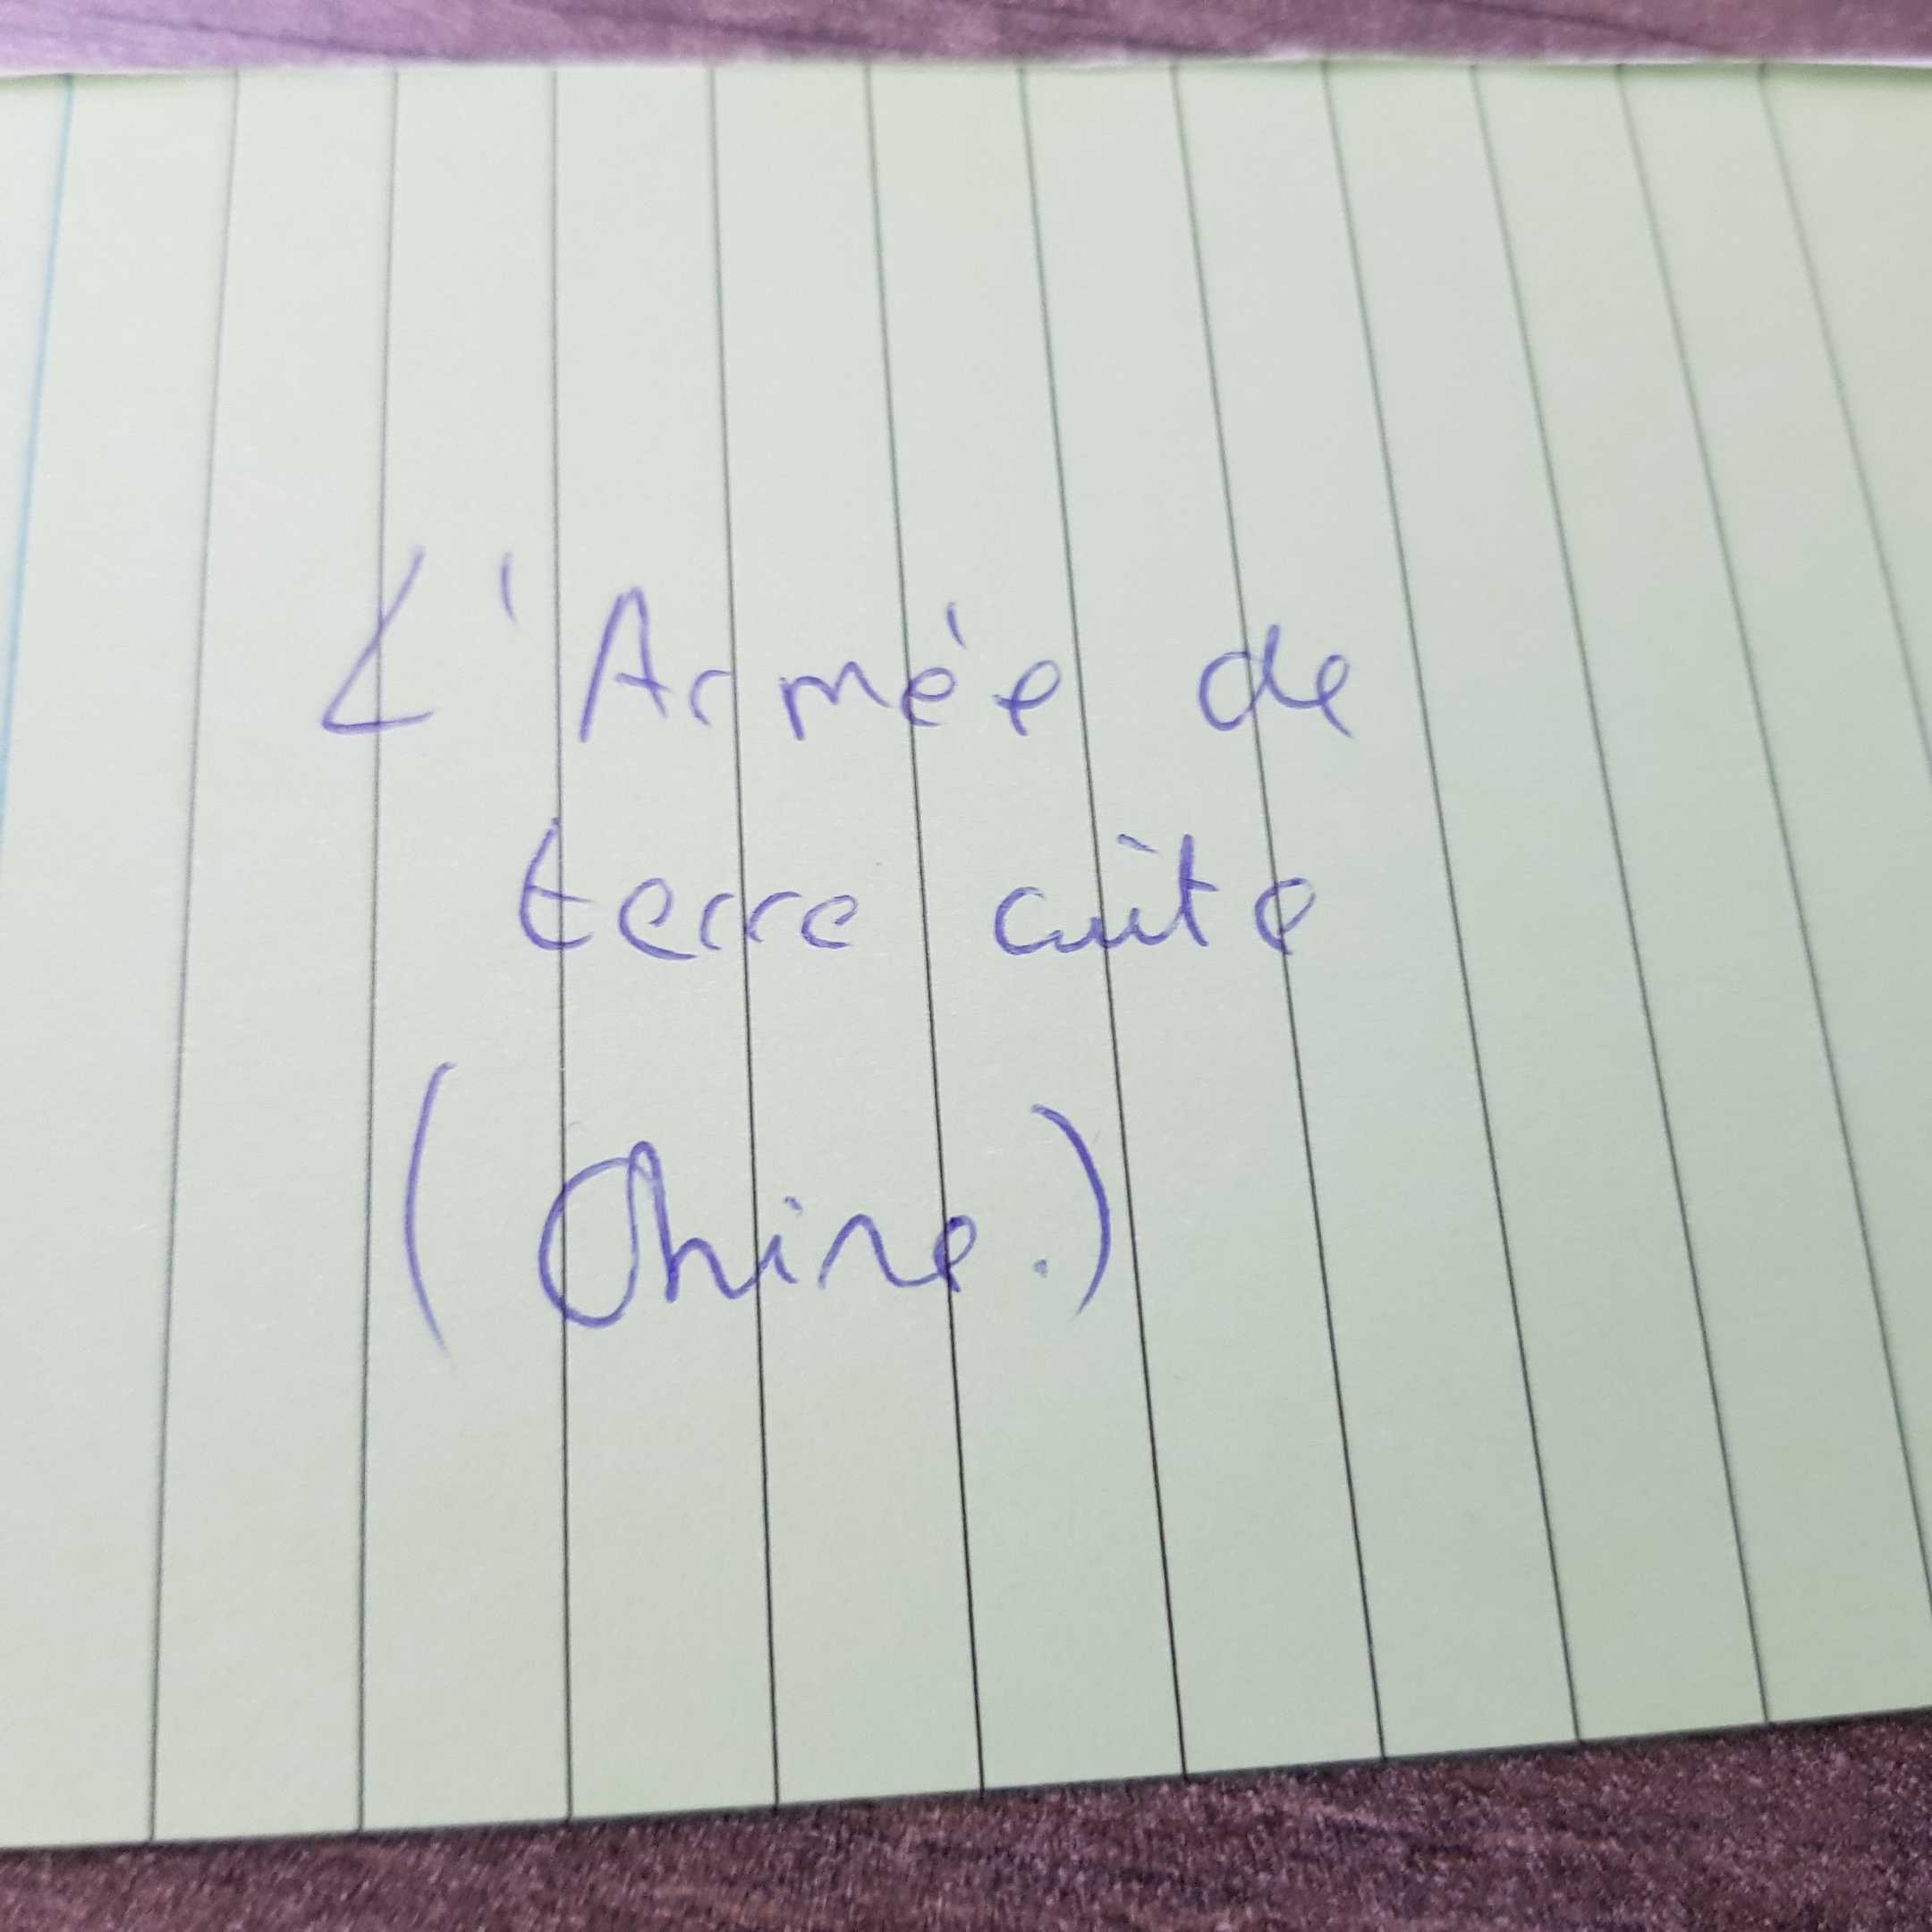 L'Armée de
terre cuite
(Chine.)